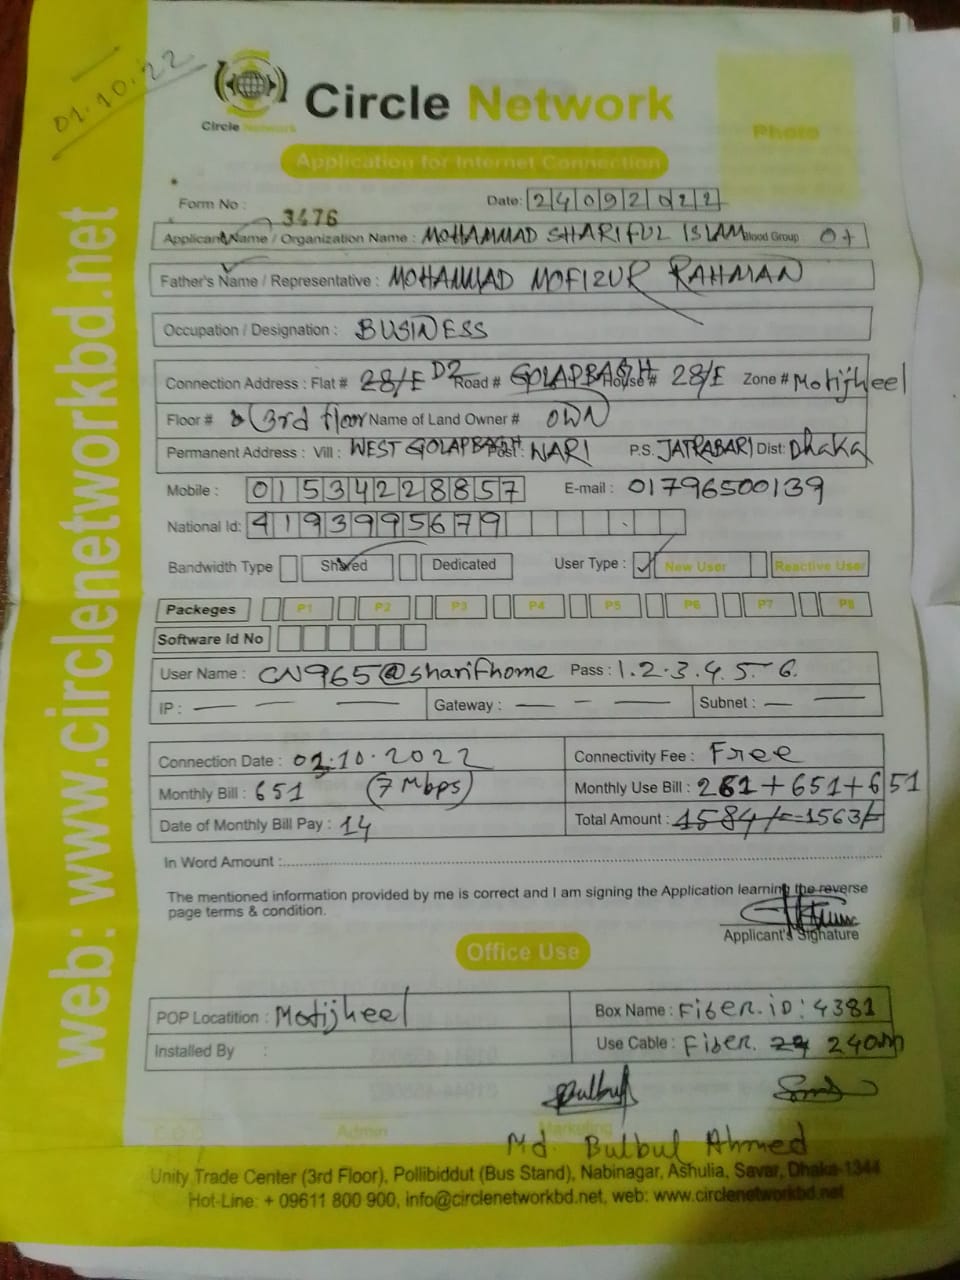 01.10.22
Circle Network
Circle Network
Photo
Application for Internet Connection
Form No : 3476 Date: 24092022
Applicant Name / Organization Name : MOHAMMAD SHARIFUL ISLAM Blood Group O+
Father's Name / Representative : MOHAMMAD MOFIZUR RAHMAN
Occupation / Designation : BUSINESS
Connection Address : Flat # 28/E D2 Road # GOLAPBAGH House # 28/E Zone # Motijheel
Floor # (3rd floor Name of Land Owner # OWN
Permanent Address : Vill : WEST GOLAPBAGH Post: NARI P.S. JATRABARI Dist: Dhaka
Mobile : 01534228857 E-mail : 01796500139
National Id: 4193995679
Bandwidth Type Shared Dedicated User Type : New User Reactive User
Packeges P1 P2 P3 P4 P5 P6 P7 P8
Software Id No
User Name : CN965@sharifhome Pass : 1.2.3.4.5.6.
IP : Gateway : Subnet :
Connection Date : 01.10.2022 Connectivity Fee : Free
Monthly Bill : 651 (7 Mbps) Monthly Use Bill : 261+651+651
Date of Monthly Bill Pay : 14 Total Amount : 1584/= =1563/=
In Word Amount :
The mentioned information provided by me is correct and I am signing the Application learning the reverse
page terms & condition.
Applicant's Signature
Office Use
POP Locatition : Motijheel Box Name : Fiber.iD: 4381
Installed By : Use Cable : Fiber. 240m
Bulbul
Admin Marketing
Md. Bulbul Ahmed
Unity Trade Center (3rd Floor), Pollibiddut (Bus Stand), Nabinagar, Ashulia, Savar, Dhaka-1344
Hot-Line: + 09611 800 900, info@circlenetworkbd.net, web: www.circlenetworkbd.net
web: www.circlenetworkbd.net